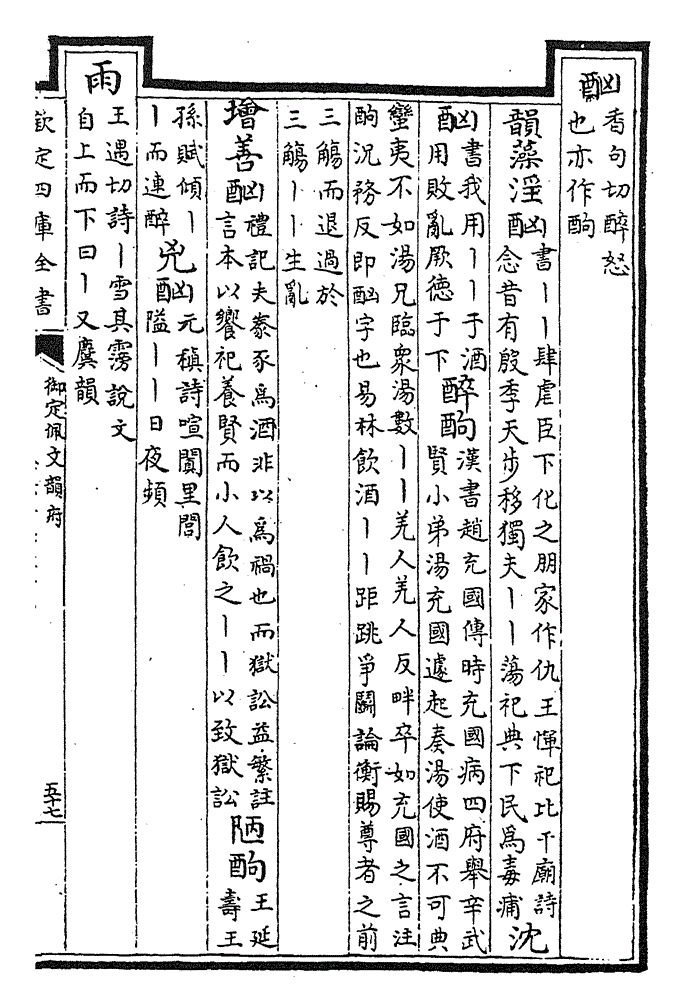 酗
香句切醉怒
也亦作䣱
韻藻淫酗
書｜｜肆虐臣下化之朋家作仇王惲祀比干廟詩
念昔有殷季天步移獨夫｜｜蕩祀典下民爲毒痡
沈
酗
書我用｜｜于酒
用敗亂厥德于下
醉䣱
漢書趙充國傳時充國病四府舉辛武
賢小弟湯充國遽起奏湯使酒不可典
蠻夷不如湯兄臨衆湯數｜｜羌人羌人反畔卒如充國之言注
䣱況務反即酗字也易林飲酒｜｜距跳爭鬭論衡賜尊者之前
三觴而退過於
三觴｜｜生亂
增善酗
禮記夫豢豕爲酒非以爲禍也而獄訟益繁註
言本以饗祀養賢而小人飲之｜｜以致獄訟
陋䣱
王延
壽王
孫賦傾｜
｜而連醉
兇酗
元稹詩喧闐里閭
隘｜｜日夜頻
雨
王遇切詩｜雪其雱說文
自上而下曰｜又麌韻
欽定四庫全書
御定佩文韻府
五十七